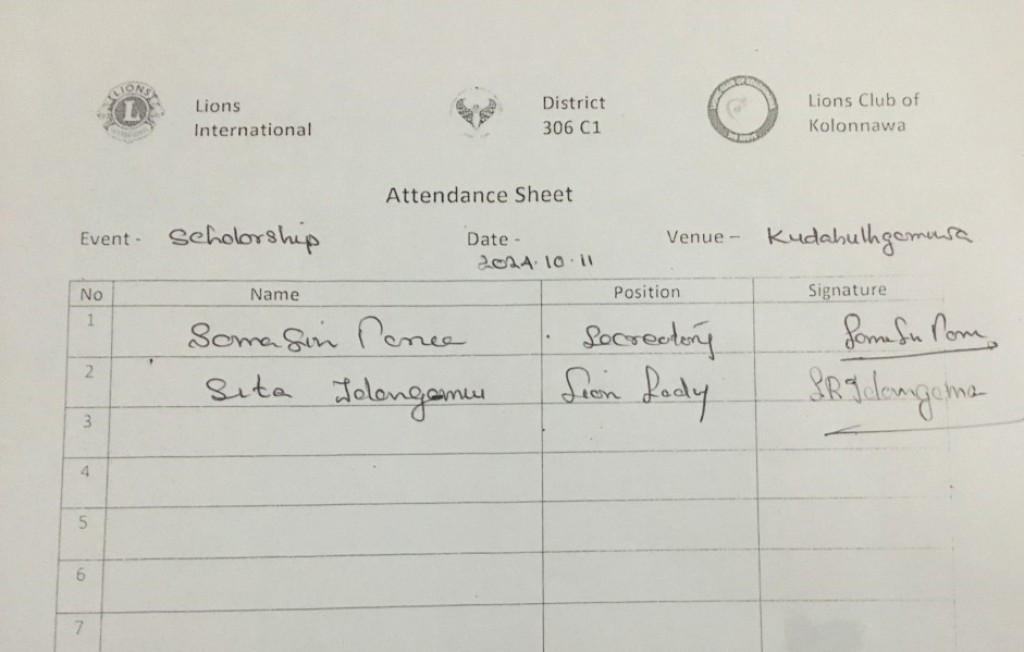 LIONS
L
Lions International
District 306 C1
Lions Club of Kolonnawa
Attendance Sheet
Event - Scholorship
Date - 2024.10.11
Venue - Kudabulhgamuwa
No Name Position Signature
1 Somasiri Secreatory
2 Sita Lion Lady
3
4
5
6
7